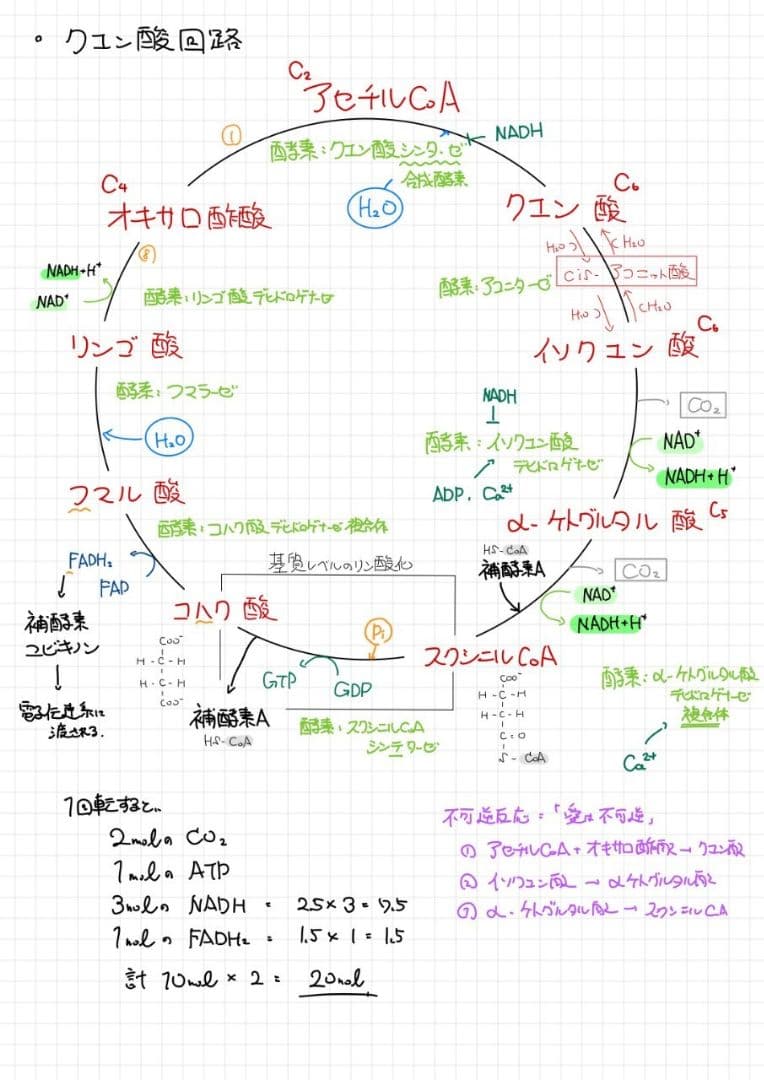 • クエン酸回路
C₂
アセチルCoA
①
NADH
酵素：クエン酸シンターゼ
合成酵素
H₂O
C₄
オキサロ酢酸
クエン酸
C₆
⑧
NADH+H⁺
NAD⁺
酵素：リンゴ酸デヒドロゲナーゼ
H₂O
H₂O
cis-アコニット酸
酵素：アコニターゼ
H₂O
H₂O
リンゴ酸
イソクエン酸
C₆
酵素：フマラーゼ
CO₂
NADH
H₂O
酵素：イソクエン酸
デヒドロゲナーゼ
NAD⁺
NADH+H⁺
ADP. Ca²⁺
フマル酸
α-ケトグルタル酸
C₅
酵素：コハク酸デヒドロゲナーゼ複合体
HS-CoA
補酵素A
FADH₂
FAD
基質レベルのリン酸化
CO₂
NAD⁺
NADH+H⁺
補酵素
ユビキノン
コハク酸
Pi
スクシニルCoA
COO⁻
H-C-H
H-C-H
COO⁻
GTP
GDP
COO⁻
H-C-H
H-C-H
C=O
S-CoA
酵素：α-ケトグルタル酸
デヒドロゲナーゼ
複合体
Ca²⁺
電子伝達系に
渡される.
補酵素A
HS-CoA
酵素：スクシニルCoA
シンテターゼ
1回転すると..
2molの CO₂
1molの ATP
3molの NADH = 2.5×3=7.5
1molの FADH₂ = 1.5×1=1.5
計 10mol × 2 = 20mol
不可逆反応：「愛は不可逆」
① アセチルCoA+オキサロ酢酸→クエン酸
② イソクエン酸 → αケトグルタル酸
③ α-ケトグルタル酸→スクシニルCA